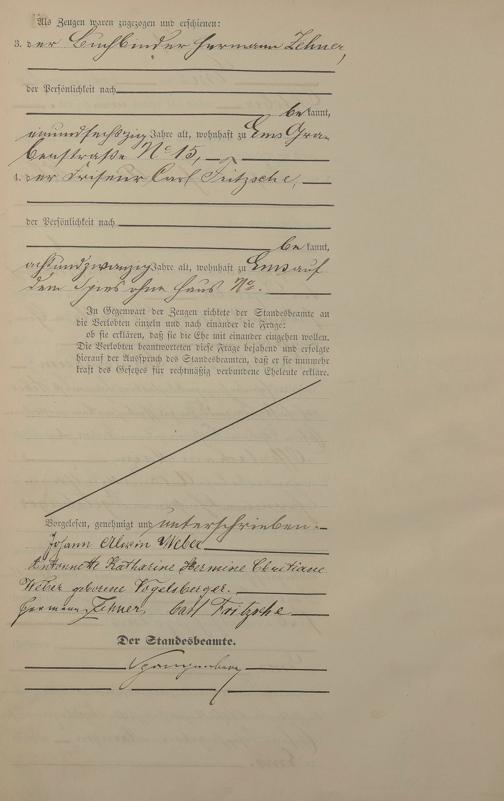 Als Zeugen waren zugezogen und erschienen:
3. der Buchbinder Hermann Zehner,
der Persönlichkeit nach
be kannt,
neunundsechszig Jahre alt, wohnhaft zu Ems Gra-
benstraße No 15,
4. der Friseur Carl Fritzsche,
der Persönlichkeit nach
be kannt,
achtundzwanzig Jahre alt, wohnhaft zu Ems auf
dem Spies ohne Haus No.
In Gegenwart der Zeugen richtete der Standesbeamte an
die Verlobten einzeln und nach einander die Frage:
ob sie erklären, daß sie die Ehe mit einander eingehen wollen.
Die Verlobten beantworteten diese Frage bejahend und erfolgte
hierauf der Ausspruch des Standesbeamten, daß er sie nunmehr
kraft des Gesetzes für rechtmäßig verbundene Eheleute erkläre.
Vorgelesen, genehmigt und unterschrieben.
Johann Alwin Weber
Antonnette Katharine Hermine Christiane
Weber geborene Vogelsberger.
Hermann Zehner, Carl Fritzsche
Der Standesbeamte.
Spangenberg